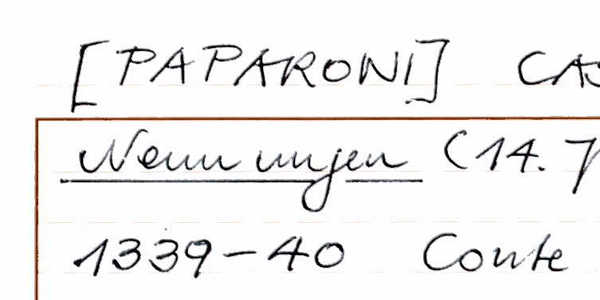 [PAPARONI] CAS
Nennungen (14.
1339-40 Conte